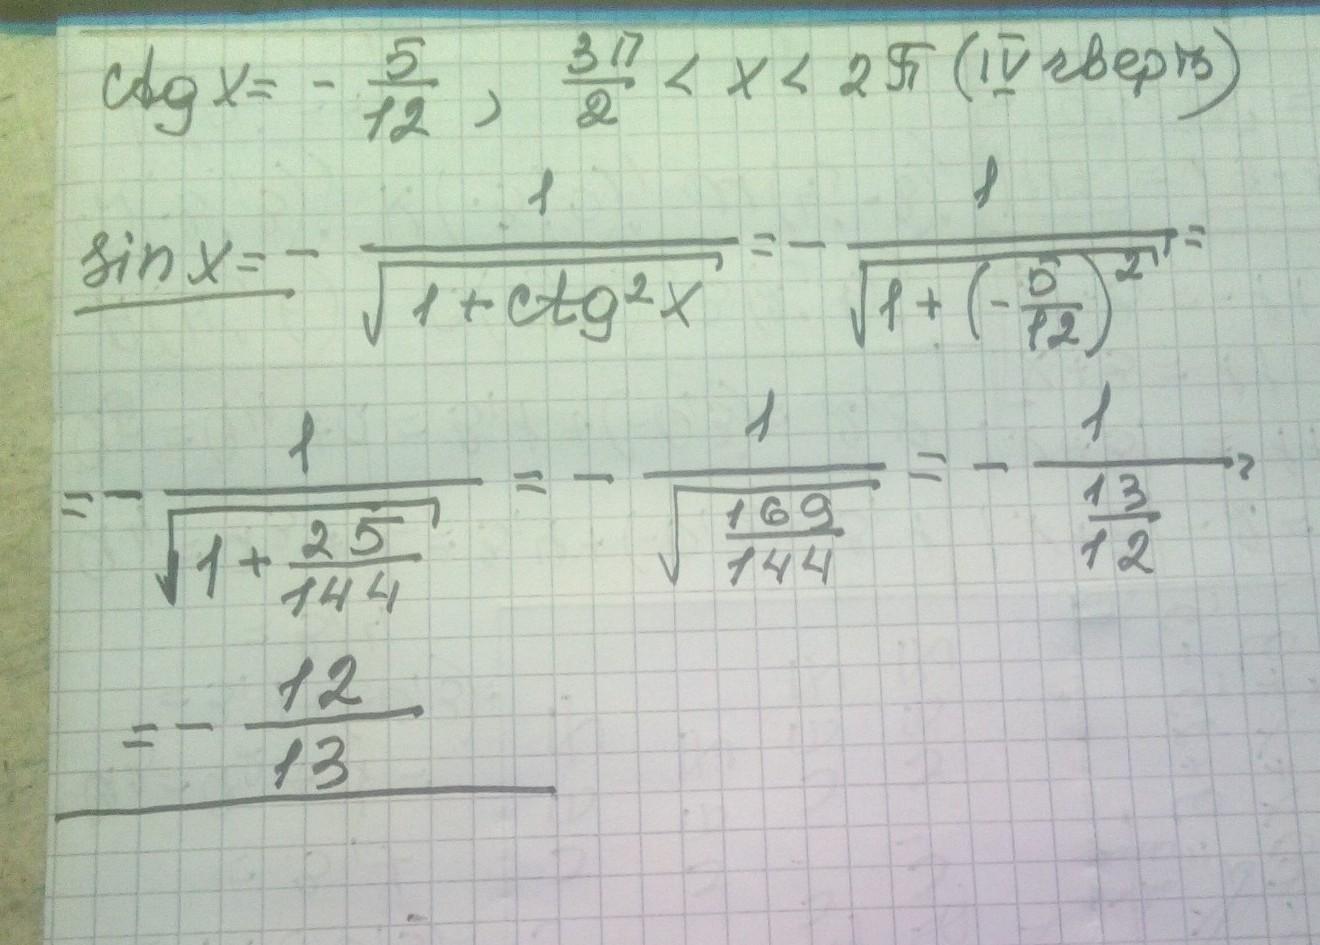 ctg x = - 5/12 , 3π/2 < x < 2π (IV чверть)
sin x = - 1/√(1 + ctg²x) = - 1/√(1 + (-5/12)²) =
= - 1/√(1 + 25/144) = - 1/√(169/144) = - 1/(13/12) =
= - 12/13